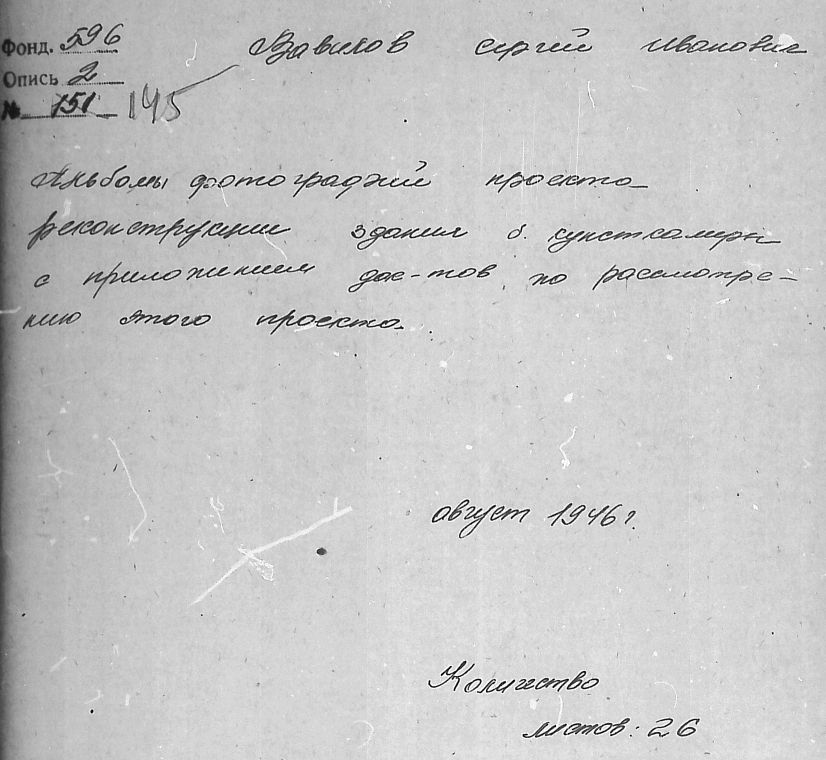 Фонд. 596
Опись 2
№ 151 145
Вавилов Сергей Иванович
Альбомы фотографий проекта
реконструкции здания б. кунсткамеры
с приложением док-тов по рассмотре-
нию этого проекта.
август 1946 г.
Количество
листов: 26